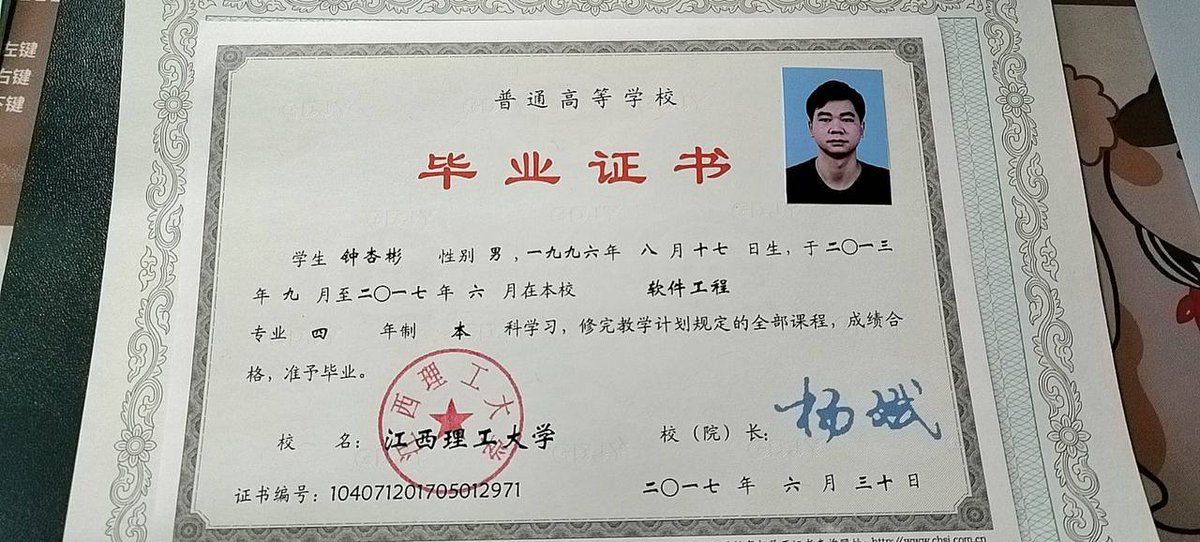 左键
右键
下键
普通高等学校
毕业证书
学生 钟杏彬 性别 男 ,一九九六年 八 月十七 日生, 于二〇一三
年 九 月至二〇一七 年 六 月在本校 软件工程
专业 四 年制 本 科学习, 修完教学计划规定的全部课程, 成绩合
格, 准予毕业。
江西理工大学
校 名: 江西理工大学 校(院)长: 杨斌
证书编号: 104071201705012971 二〇一七 年 六 月 三十 日
http://www.chsi.com.cn